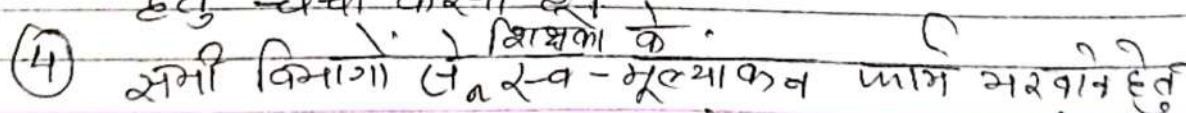 हेतु चर्चा
④ सभी विभागों से शिक्षकों के स्व-मूल्याकन फार्म भरवाने हेतु